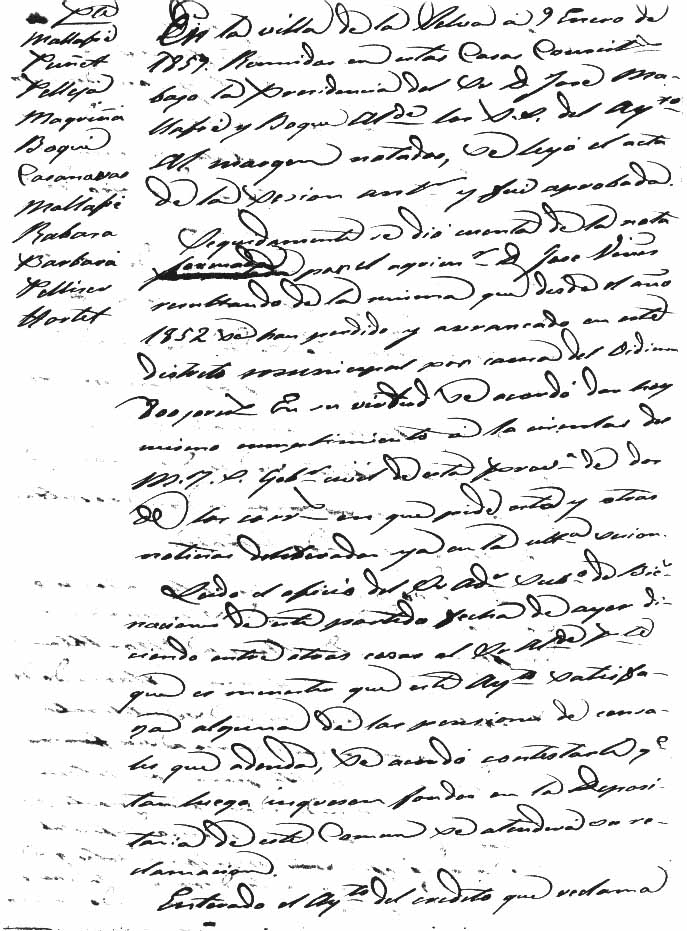 Pte
Mallafré
Puñet
Pellejá
Maquina
Boqué
Casanovas
Mallafré
Rabasa
Barbará
Pellicer
Hortet
En la villa de la Selva á 9 Enero de
1859. Reunidos en estas Casas Consist.s
bajo la Presidencia del Sr D. José Ma-
llafré y Boqué Alde los S.S. del Aymto
Al margen notados, se leyó el acta
de la sesion antr y fué aprobada.
Seguidamente se dió cuenta de la nota
formada por el agrimr D. José Vives
resultando de la misma que desde el año
1852 se han perdido y arrancado en este
distrito municipal por causa del Oidium
700 jorns En su virtud se acordó dar hoy
mismo cumplimiento á la circular del
M. I. S. Gobr civil de esta Prova de dos
de los corrtes en que pide esta y otras
noticias deliberadas ya en la ulta sesion.
Leido el oficio del Sr Adr Subo de Bie-
naciones de este partido fecha de ayer di-
ciendo entre otras cosas al Sr Alde Pte
que es menester que este Aymto satisfa-
ga alguna de las pensiones de censa-
les que adeuda, se acordó contestarle qe
tan luego ingresen fondos en la Deposi-
taria de este Comun se atenderá su re-
clamacion.
Enterado el Aymto del crédito que reclama